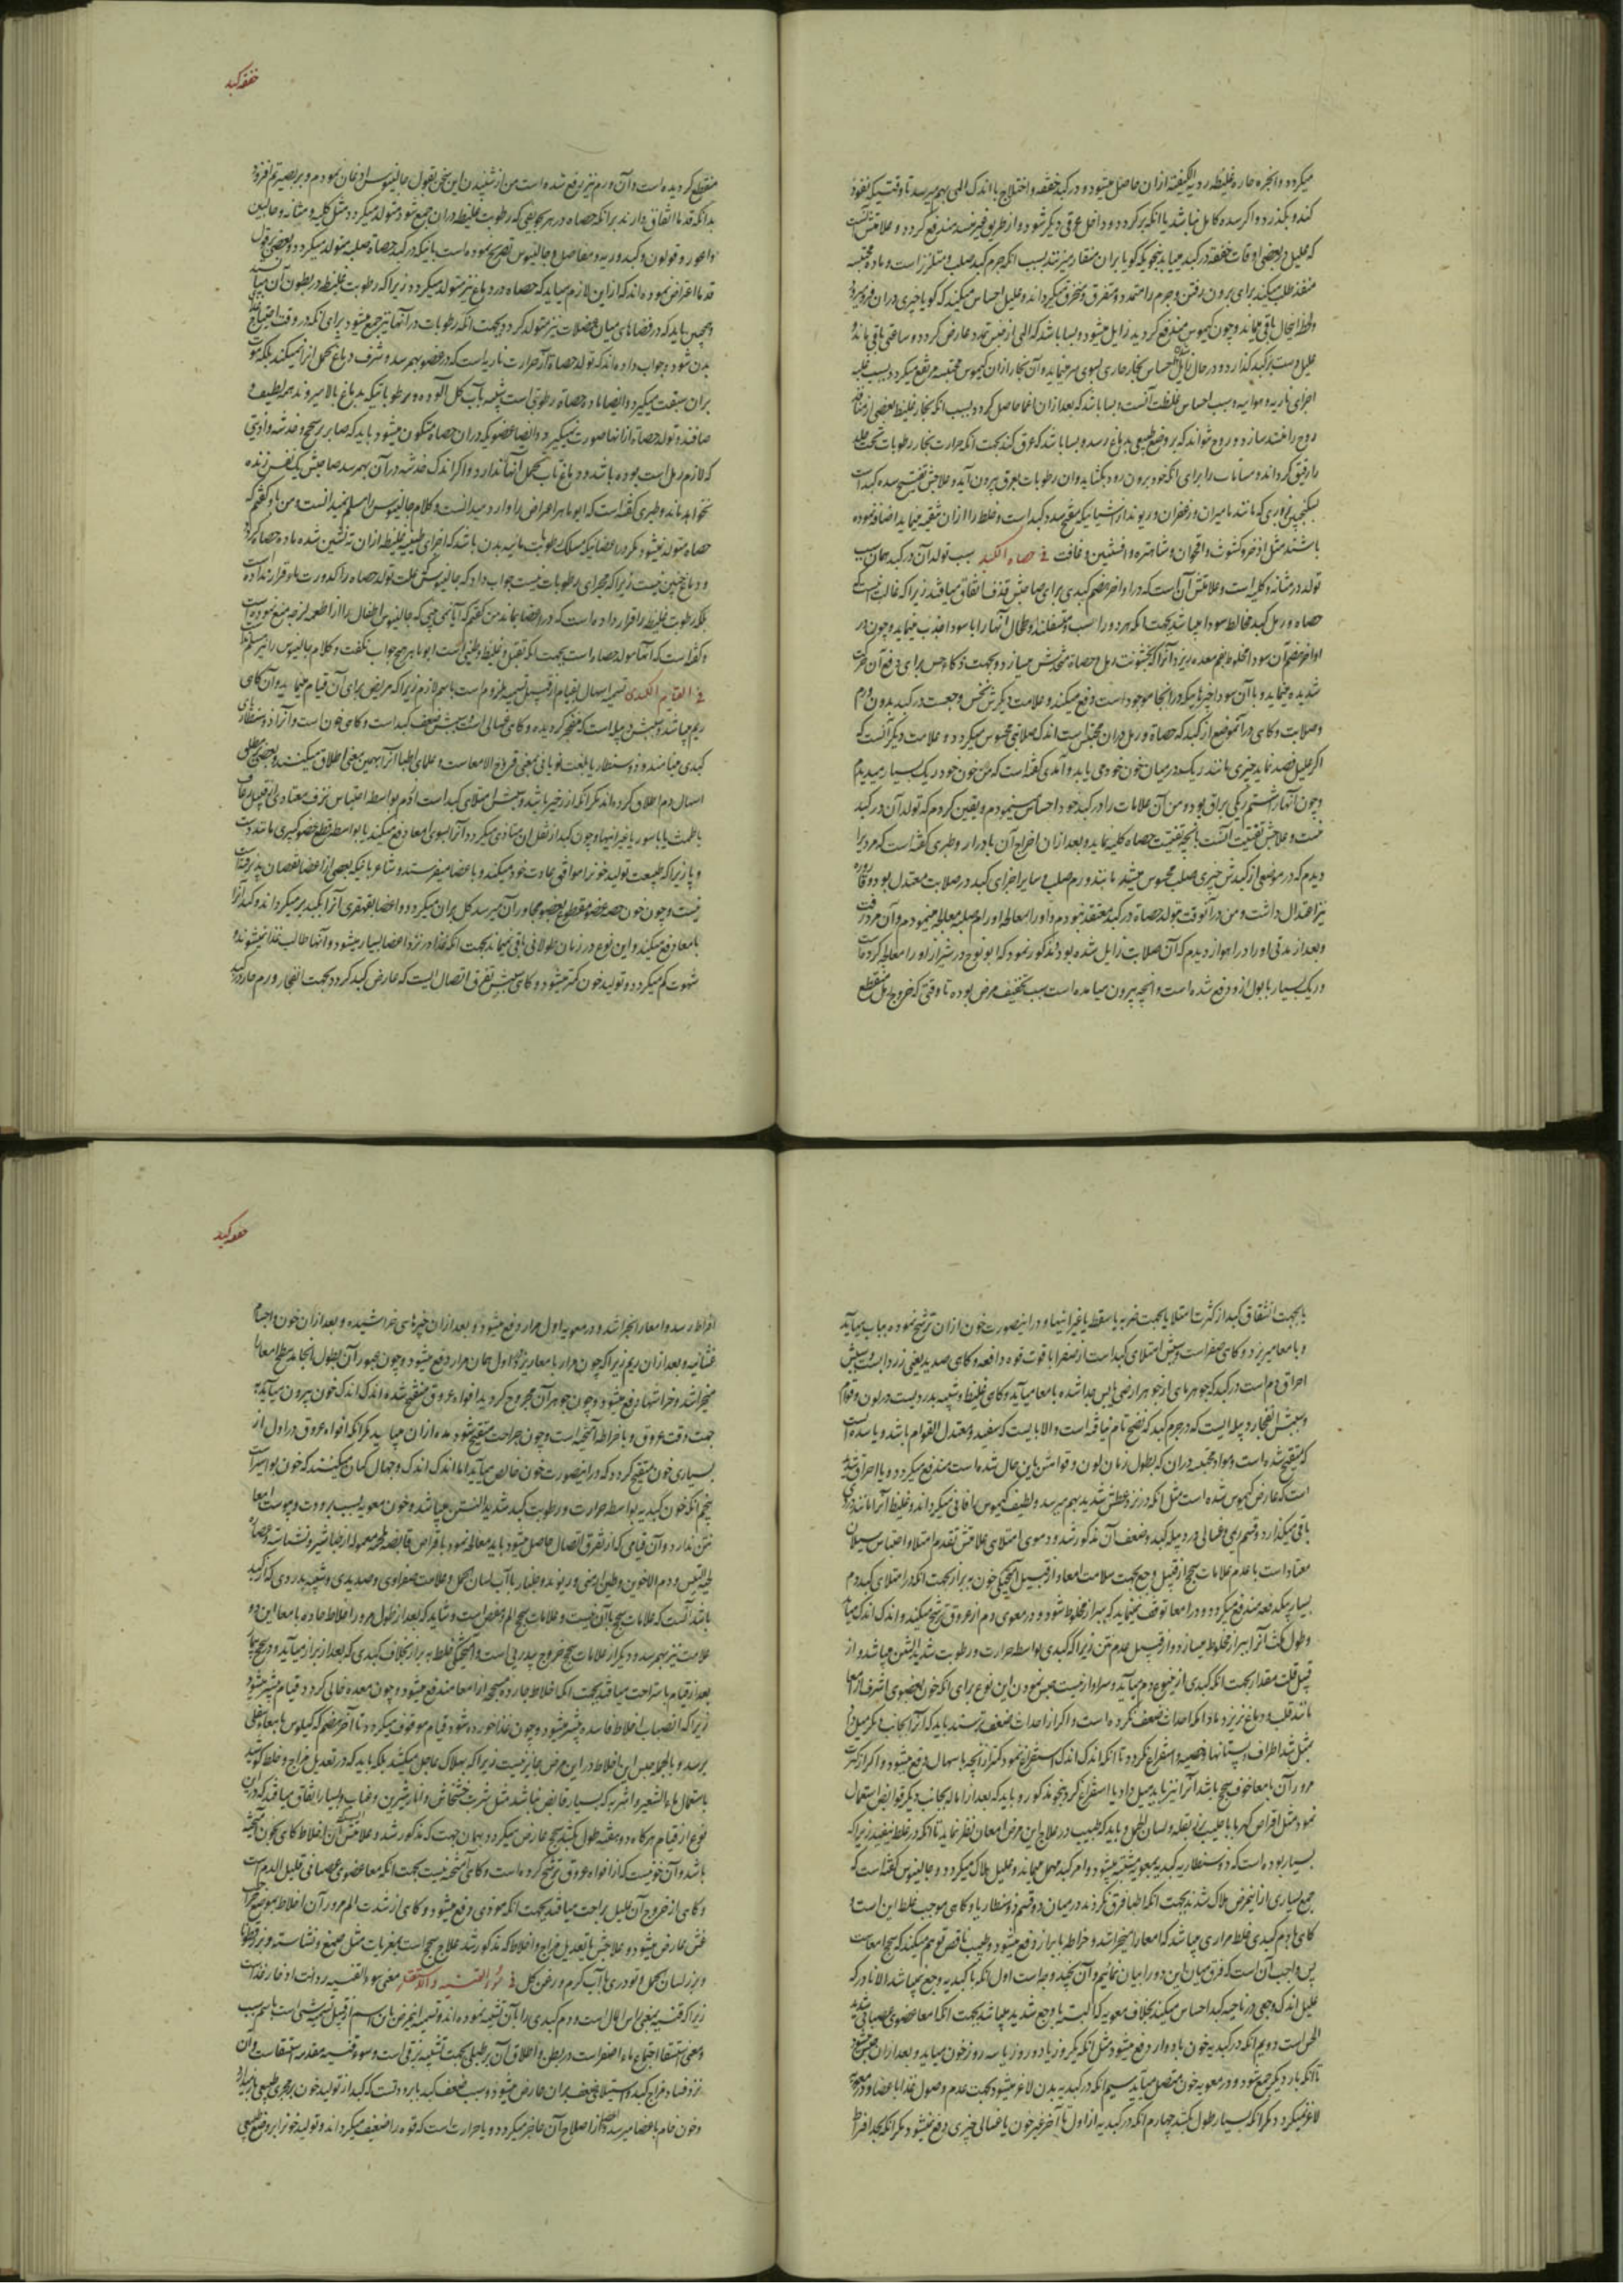 میکردد وابخره حاره غلیظه ردیة الکیفیة ازان حاصل میشود و در کبد خفقه و اختلاج با اندک المی بهم میرسد تا وقتیکه نفوذ
کند و بکذرد و اکر سده کامل نباشد یا انکه برکردد و داخل عرقی دیکر شود و از طریق غیر منسد مندفع کردد و علامتش آنست
که علیل در بعضی اوقات خفقه در کبد میابد بنحویکه کویا بران منقار میزنند بسبب انکه جرم کبد صلب و متلزز است و ماده محتبسه
منفذ طلب میکند برای برون رفتن و جرم را متمدد و متفرق و منخرق میکرداند و علیل احساس میکند که کویا چیزی دران فرو میرود
باقی میماند و چون کیموس مندفع کردید زایل میشود و بسا باشد که المی از جنس تمدد عارض کردد و ساعتی باقی ماند و
علیل دست بر کبد کذارد و در حال احساس بخار حاری بسوی سر مینماید و آن بخار ازان کیموس محتبسه مرتفع میکردد بسبب غلبه
اجزای ناریه و هوائیه و سبب احساس غلظت آنست و بسا باشد که بعد ازان اغما حاصل کردد بسبب انکه بخار غلیظ بعضی از منافذ
روح را منسد سازد و روح نتواند که بر وضع طبیعی بدماغ رسد و بسا باشد که عرق کند بجهت انکه حرارت بخار رطوبات تحت جلد
را رقیق کرداند و مسامات را برای انکه خود برون رود بکشاید و ان رطوبات بعرق بیرون آید و علاجش تفتیح سده کبد است
بسکنجبین بزوری که مانند مامیران و زعفران و ریوند از اشیائیکه مفتح سدد کبد است و خلط را ازان تنقیه مینماید اضافه نموده
باشند مثل اذخر و کشوث و اقحوان و شاهتره و افسنتین و غافت فی حصاه الکبد سبب تولد آن در کبد همان سبب
تولد در مثانه و کلیه است و علامتش آن است که در اواخر هضم کبدی برای صاحبش قذف اتفاق میافتد زیرا که غالب اینست که
حصاه و رمل کبد مخالط سودا میباشد بجهت انکه هر دو راسب و متسفلند و طحال آنها را با سودا جذب مینماید و چون در
اواخر هضم آن سودا مخلوط بفم معده میریزد آنرا که بخشونت رمل و حصاة متخدش میسازد و بجهت ذکاء حس برای دفع آن حرکت
شدیده مینماید و با آن سودا چیزها دیکر در انجا موجود است دفع میکند و علامت دیکرش نخس و وجعست در کبد بدون ورم
و صلابت و کاهی در آنموضع از کبد که حصاة و رمل دران محتبس است اندک صلابتی محسوس میکردد و علامت دیکر آنست که
اکر علیل فصد نماید چیزی مانند ریک در میان خون خود می یابد و آمدی کفته است که من خون خود ریک بسیار میدیدم
و چون آنها را شستم ریکی براق بود و من آن علامات را در کبد خود احساس مینمودم و یقین کردم که تولد آن در کبد
است و علاجش تفتیت آنست بانچه تفتیت حصاه کلیه نماید و بعد ازان اخراج آن بادرار و طبری کفته است که مردی را
دیدم که در موضعی از کبدش چیزی صلب محسوس میشد مانند ورم صلب و سایر اجزای کبد در صلابت معتدل بود و قاروره
نیز اعتدال داشت و من در آنوقت بتولد حصاة در کبد معتقد نبودم و او را معالجه اورام صلبه معالجه مینمودم و آن مرد رفت
و بعد از مدتی او را در اهواز دیدم که آن صلابت زایل شده بود و مذکور نمود که ابونوح در شیراز او را معالجه کرده است
و ریک بسیار با بول از او دفع شده است و انچه بیرون میامده است سبب تخفیف مرض بوده تا وقتی که خروج رمل منقطع
خفقه کبد
منقطع کردیده است و آن ورم نیز برفع شده است من از شنیدن این سخن بقول جالینوس اذعان نمودم و بر بصیرتم افزود
بدانکه قدما اتفاق دارند بر انکه حصاه در هر تجویفی که رطوبت غلیظه دران جمع شود متولد میکردد مثل کلیه و مثانه و حالبین
و اعور و قولون و کبد و ریه و مفاصل و جالینوس تصریح نموده است بانیکه در کبد حصاة صلبه متولد میکردد و بعضی بر قول
قدما اعتراض نموده اند که ازاین لازم میاید که حصاه در دماغ نیز متولد میکردد زیرا که رطوبت غلیظه در بطون آن میباشد
و همچنین باید که در فضاهای میان عضلات نیز متولد کردد بجهت انکه رطوبات در آنها نیز جمع میشود برای انکه در وقت احتیاج
بدن شود و جواب داده اند که تولد حصاة از حرارت ناریه است که در عضو بهم رسد و شرف دماغ تحمل انرا نمیکند بلکه موت
بران سبقت میکیرد و ایضا ماده حصاة رطوبتی است شبیه بآب کل آلوده و رطوباتیکه بدماغ بالا میروند همه لطیف و
صافند و تولد حصاة ازانها صورت نمیکیرد و ایضا عضویکه دران حصاه متکون میشود باید که صابر بر سحج و خدشه و اذیتی
که لازم رمل است بوده باشد و دماغ تاب تحمل انها ندارد و اکر اندک خدشه در آن بهم رسد صاحبش یک نفس زنده
نخواهد ماند و طبری کفته است که ابو ماهر اعتراض را وارد میدانست و کلام جالینوس را مسلم نمیدانست و من باو کفتم که
حصاه متولد نمیشود مکر در اعضائیکه مسلک رطوبات مائیه بدن باشد که اجزای طینیه غلیظه ازان ته نشین شده ماده حصاه کردد
و دماغ چنین نیست زیرا که مجرای رطوبات نیست جواب داد که جالینوس علت تولد حصاه را کدورت ماء قرار نداده است
بلکه رطوبت غلیظ را قرار داده است که در اعضا بماند من کفتم که آیا نمی بینی که جالینوس اطفال را از اطعمه لزجه منع نموده است
و کفته است که آنها مولد حصاه است بجهت انکه ثقیل و غلیظ و طینی است ابو ماهر هیچ جواب نکفت و کلام جالینوس را نیز مسلم داشت
فی القیام الکبدی تسمیه اسهال بقیام از قبیل تسمیه ملزوم است باسم لازم زیرا که مریض برای آن قیام مینماید و آن کاهی
ریم میباشد و سببش دبیله است که منفجر کردیده و کاهی غسالی است و سببش ضعف کبد است و کاهی خون است و آنرا ذوسنطاریای
کبدی مینامند و ذوسنطاریا بلغت یونانی بمعنی قروح الامعاست و علمای اطبا آنرا بهمین معنی اطلاق میکنند و بعضی بر مطلق
اسهال دم اطلاق کرده اند مکر انکه از زحیر باشد و سببش امتلای کبد است از دم بواسطه احتباس نزف معتادی از قبیل رعاف
یا طمث یا باسور یا غیر اینها و چون کبد از ثقل ان متاذی میکردد آنرا بسوی امعا دفع میکند یا بواسطه قطع عضو کبیری مانند دست
و پا زیرا که طبیعت تولید خون را موافق عادت خود میکند و باعضا میفرستد و شاعر بانیکه بعضی از اعضا نقصان پذیرفته است
نیست و چون خون حصه عضو مقطوع بعضو مجاور آن میرسد کل بران میکردد و اعضا بقهقری آنرا بکبد برمیکرداند و کبد آنرا
بامعا دفع میکند و این نوع در زمان طولانی باقی نمیماند بجهت انکه غذا در نزد اعضا بسیار میشود و آنها طالب غذا نمیشوند و
شهوت کم میکردد و تولید خون کمتر میشود و کاهی سببش تفرق اتصال ایست که عارض کبد کردد بجهت انفجار ورم حار دموی
یا بجهت انشقاق کبد از کثرت امتلا یا بجهت ضربه یا سقطه یا غیر اینها و در اینصورت خون ازان ترشح نموده بباب میآید
و بامعا میریزد و کاهی صفراست و سببش امتلای کبد است از صفرا با قوت قوه دافعه و کاهی صدید یعنی زرد آبست و سببش
احراق دم است در کبد که جوهر مائی از جوهر ارضی یابس جدا شده بامعا میآید و کاهی غلیظ و شبیه بدردیست در لون و قوام
و سببش انفجار دبیله ایست که در جرم کبد که نضج تام نیافته است و الا بایست که سفید و معتدل القوام باشد و یا سده است
که منفتح شده است و مواد مجتمعه دران که بطول زمان لون و قوامش باین حال شده است مندفع میکردد و یا احراق شدید
است که عارض کیموس شده است مثل انکه در نزد عطش شدید بهم میرسد و لطیف کیموس را فانی میکرداند و غلیظ آنرا مانند دردی
باقی میکذارد و قسم ریمی و غسالی در دبیله کبد و ضعف آن مذکور شد و دموی امتلائی علامتش تقدم امتلا و احتباس سیلان
معتاد است با عدم علامات سحج از قبیل وجع بجهت سلامت امعا و از قبیل آمیختکی خون به براز بجهت انکه در امتلای کبد دم
بسیار بیکدفعه مندفع میکردد و در امعا توقف نمینماید که ببراز مخلوط شود و در معوی دم از عروق ترشح میکند و اندک اندک میآید
و طول مکث آنرا ببراز مخلوط میسازد و از قبیل عدم نتن زیرا که کبدی بواسطه حرارت و رطوبت شدید النتن میباشد و از
قبیل قلت مقدار بجهت انکه کبدی از ینبوع دم میآید و سزاوار نیست حبس نمودن این نوع برای انکه خون بعضوی اشرف از امعا
مانند قلب و دماغ نریزد مادام که احداث ضعف نکرده است و اکر از احداث ضعف ترسند باید که آنرا بجانب دیکر میل دهند
بمثل شد اطراف و پستانها و خصیه و استفراغ نکردد تا انکه اندک اندک استفراغ نمود کمتر ازانچه باسهال دفع میشود و اکر از کثرت
مرور آن بامعا خوف سحج باشد آنرا نیز باید میل داد یا استفراغ کرد بنحو مذکور و باید که بعد از اماله بجانب دیکر قوابض استعمال
نمود مثل اقراص کهربا با حلیب بزر بقله و لسان الحمل و باید که طبیب در علاج این مرض امعان نظر نماید تا انکه در غلط نیفتد زیرا که
بسیار بوده است که ذوسنطاریه کبدیه بمعویه مشتبه میشود و امر کبد مهمل میماند و علیل هلاک میکردد و جالینوس کفته است که
جمع بسیاری ازاین مرض هلاک شدند بجهت انکه اطبا فرق نکردند در میان دو قسم ذوسنطاریا و کاهی موجب غلط این است و
کاهی با دم کبدی خلط مراری میباشد که امعا را میخراشد و خراطه با براز دفع میشود و طبیب ناقص توهم میکند که سحج امعاست
پس واجب آن است که فرق میان این دو را بیان نمائیم و آن بچند وجه است اول انکه با کبدیه وجع نمیباشد الا نادر که
علیل اندک وجعی در ناحیه کبد احساس میکند بخلاف معویه که البته با وجع شدید میباشد بجهت انکه امعا عضوی عصبانی شدید
الحس است دویم انکه در کبدیه خون بادوار دفع میشود مثل انکه یکروز یا دو روز یا سه روز خون میاید و بعد ازان حبس میشود
تا انکه بار دیکر جمع شود و در معویه خون متصل میآید سیم انکه در کبدیه بدن لاغر میشود بجهت عدم وصول غذا باعضا و در معویه
لاغر نمیکردد مکر انکه بسیار طول بکشد چهارم انکه در کبدیه از اول تا آخر غیر خون یا غسالی چیزی دفع نمیشود مکر انکه بحد افراط
خفقه کبد
افراط رسد و امعا را بخراشد و در معویه اول مرار دفع میشود و بعد ازان چیزهای خراشیده و بعد ازان خون و اجسام
غشائیه و بعد ازان ریم زیرا که چون مرار بامعا ریزد اول همان مرار دفع میشود و چون عبور آن بطول انجامد سطح امعا را
میخراشد و خراشها دفع میشود و چون جوهر آن مجروح کردید افواه عروق منفتح شده اندک اندک خون بیرون میآید
جهت دقت عروق و با خراطه آمیخته است و چون جراحت متقیح شود مده ازان میاید مکر انکه افواه عروق در اول از
بسیاری خون منفتح کردد که در اینصورت خون خالص میآید اما اندک اندک و جهال کمان میکنند که خون بواسیر است
پنجم انکه خون کبدیه بواسطه حرارت و رطوبت کبد شدید النتن میباشد و خون معویه بسبب برودت و یبوست امعا
نتن ندارد و آن قیامی که از تفرق اتصال حاصل میشود باید معالجه نمود باقراص قابضه ملحمه معموله از طباشیر و نشاسته و عصاره
لحیة التیس و دم الاخوین و طین ارمنی و ریوند و جلنار با آب لسان الحمل و علامت صفراوی و صدیدی و شبیه بدردی که از کبد
باشد آنست که علامات سحج با آن نیست و علامات سحج الم و مغص است و شاید که بعد از طول مرور اخلاط حاده بامعا این دو
علامت نیز بهم رسد و دیکر از علامات سحج خروج پی در پی است و آمیختکی خلط به براز بخلاف کبدی که بعد از براز میآید و در سحج بیمار
بعد از قیام باستراحت میافتد بجهت انکه اخلاط حاره مسحجه از امعا مندفع میشود و چون معده خالی کردد قیام بیشتر میشود
زیرا که انصباب اخلاط فاسده بیشتر میشود و چون غذا خورده شود قیام موقوف میکردد تا آخر هضم که کیلوس بامعاء سفلی
برسد و بالجمله حبس این اخلاط در این مرض جایز نیست زیرا که بهلاک عاجل میکشد بلکه باید که در تعدیل مزاج و خلط کوشید
باستعمال ماء الشعیر و اشربه که بسیار قابض نباشد مثل شربت خشخاش و انار شیرین و عناب و بسیار اتفاق میافتد که دراین
نوع از قیام هرکاه دو هفته طول بکشد سحج عارض میکردد بهمان جهت که مذکور شد و علامتش آن است اخلاط کاهی بخون آمیخته
باشد و آن خونیست که از افواه عروق ترشح کرده است و کاهی آمیخته نیست بجهت انکه معا عضوی عصبانی قلیل الدم است
و کاهی از خروج آن علیل براحت میافتد بجهت انکه موذی دفع میشود و کاهی از شدت الم مرور آن اخلاط بموضع سحج
غشی عارض میشود و علاجش با تعدیل مزاج و اخلاط که مذکور شد علاج سحج است بمغریات مثل صمغ و نشاسته و بزر قطونا
و بزر لسان الحمل و تودری ها بآب کرم و روغن کل فی سوء القنیه و الاستسقا معنی سوء القنیه ردائت ادخار غذاست
زیرا که قنیه بمعنی راس المال است و دم کبدی را بآن تشبیه نموده اند و تسمیه این مرض باین اسم از قبیل تسمیه شی است باسم سبب
و معنی استسقا اجتماع ماء اصفر است در بطن و اطلاق آن بر طبلی بجهت تشبیه بزقی است و سوء قنیه مقدمه استسقاست و آن
نزد فساد مزاج کبد و استیلای ضعف بران عارض میشود و سبب ضعف کبد یا برودتست که کبد از تولید خون بر مجری طبیعی باز میدارد
و خون خام باعضا میرسد و اعضا از اصلاح آن عاجز میکردد و یا حرارت است که قوه را ضعیف میکرداند و تولید خون را بر وضع طبیعی